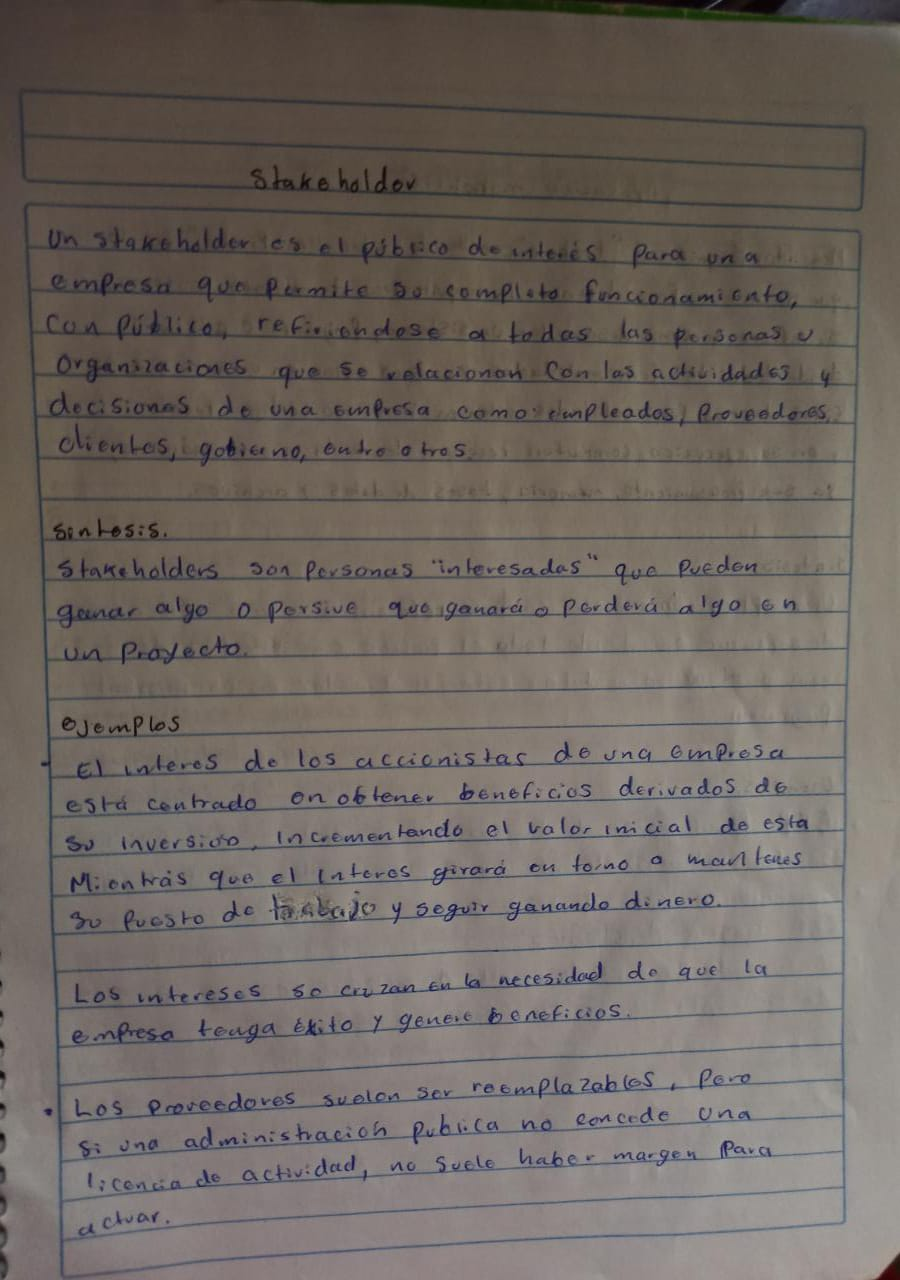 Stakeholder
Un stakeholder es el público de interés para una
empresa que permite su completo funcionamiento,
Con Público, refiriendose a todas las personas u
Organizaciones que se relacionan Con las actividades y
decisiones de una empresa como: empleados, Proveedores,
clientes, gobierno, entre otros.
Sintesis.
Stakeholders son Personas "interesadas" que Pueden
ganar algo o Persive que ganará o Perderá algo en
un Proyecto.
ejemplos
- El interes de los accionistas de una empresa
está centrado en obtener beneficios derivados de
su inversión, Incrementando el valor inicial de esta
Mientrás que el interes girará en torno a mantenes
su Puesto de trabajo y seguir ganando dinero.
Los intereses se cruzan en la necesidad de que la
empresa tenga éxito y genere beneficios.
• Los Proveedores suelen ser reemplazables, Pero
Si una administración Publica no concede una
licencia de actividad, no suele haber margen Para
actuar.